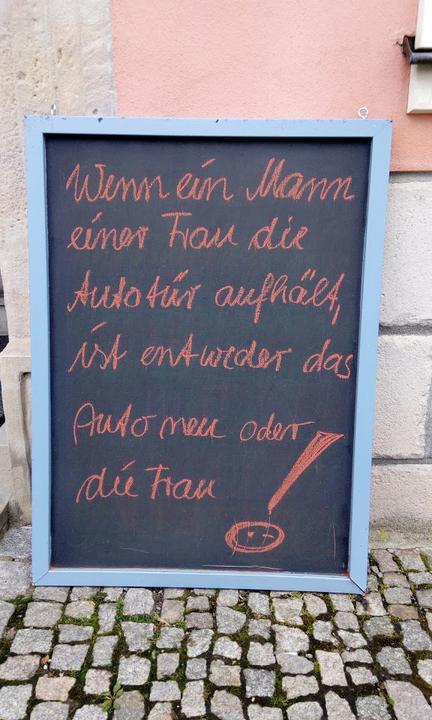 Wenn ein Mann
einer Frau die
Autotür aufhält,
ist entweder das
Auto neu oder
die Frau !